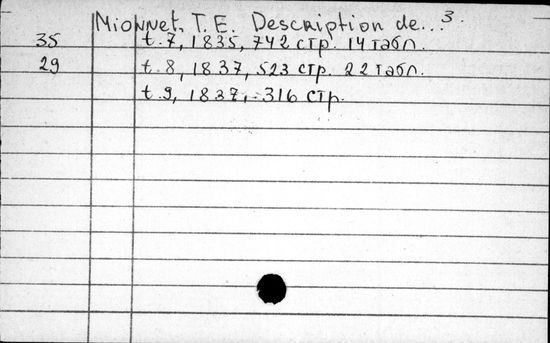 Mionnet, T. E. Description de... 3.
35 t. 7, 1835, 742 стр. 14 табл.
29 t. 8, 1837, 523 стр. 22 табл.
t. 9, 1837, 316 стр.